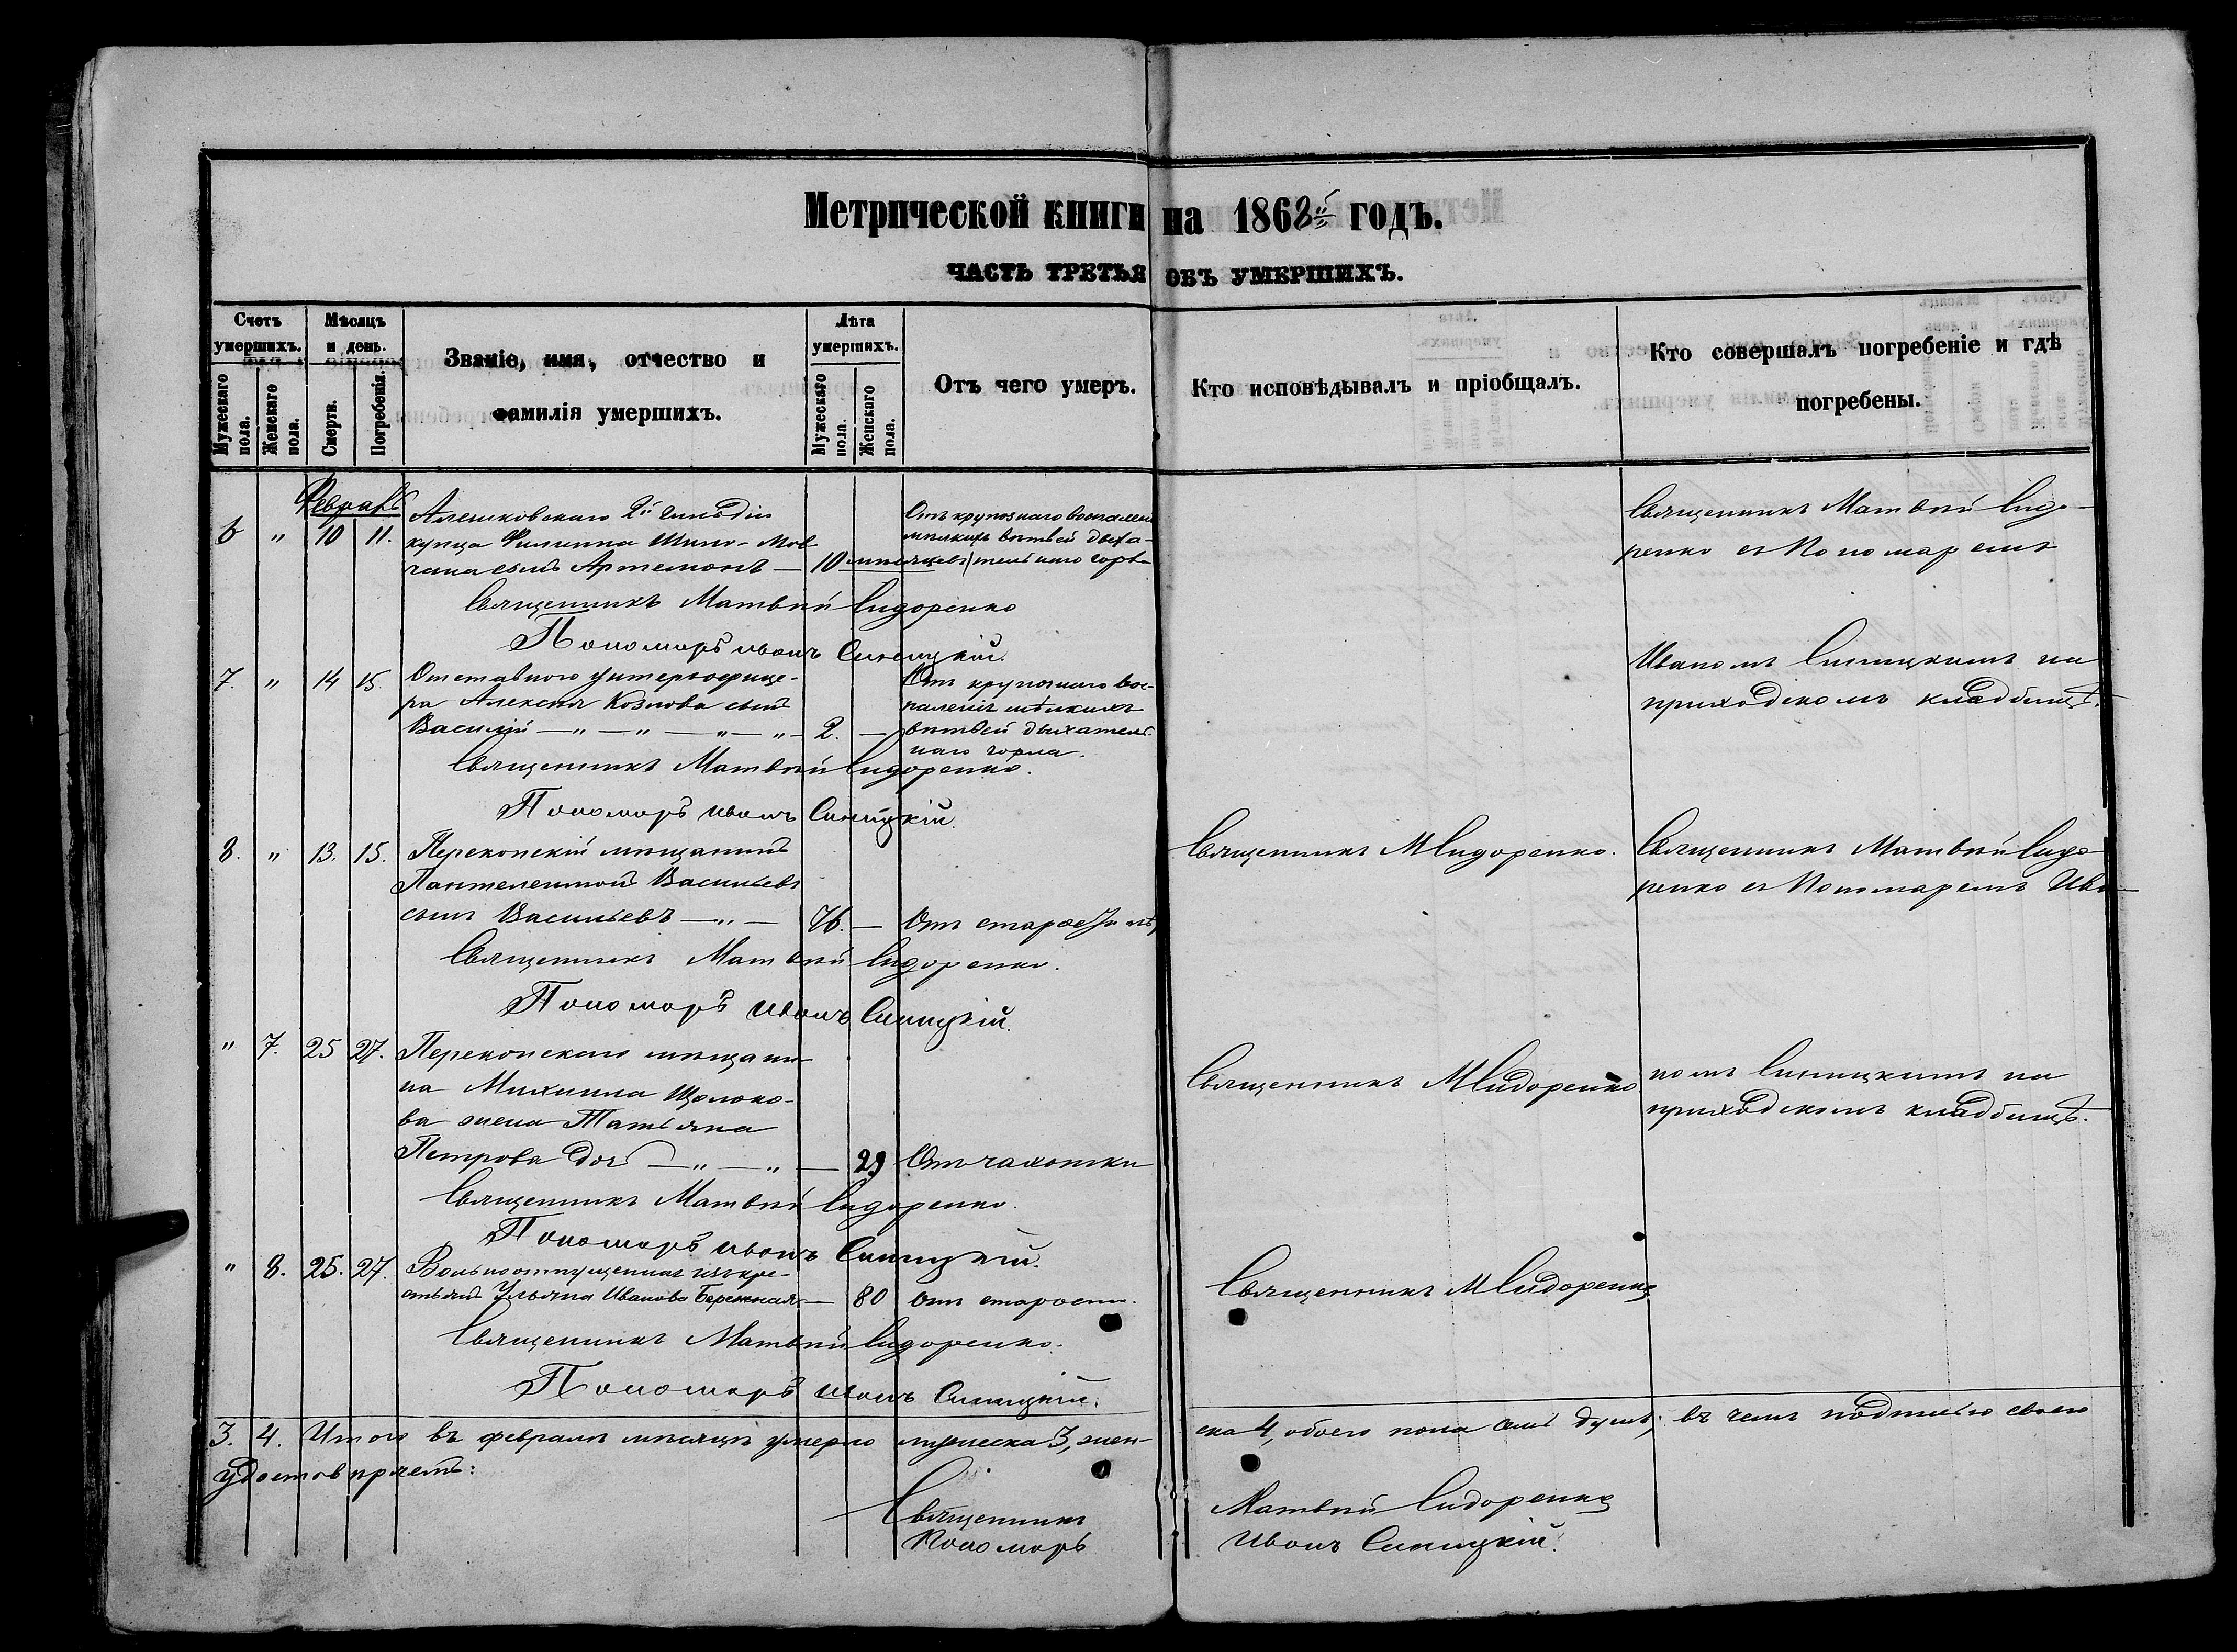 Метрической книги на 1868й годъ.
ЧАСТЬ ТРЕТЬЯ ОБЪ УМЕРШИХЪ.
Счетъ умершихъ.
Мужескаго пола.
Женскаго пола.
Мѣсяцъ и день.
Смерти.
Погребенія.
Званіе, имя, отчество и
фамилія умершихъ.
Лѣта умершихъ.
Мужескаго пола.
Женскаго пола.
Отъ чего умеръ.
Кто исповѣдывалъ и пріобщалъ.
Кто совершалъ погребеніе и гдѣ
погребены.
Февраль
6 " 10 11. Алешковскаго 2й гильдіи
купца Филиппа Шило-Мов
чана сынъ Артемонъ — 10 мѣсяцевъ
Отъ крупознаго воспален
мѣлкихъ вѣтвей дыха-
тельнаго горла
Священникъ Матвѣй Сидо-
ренко съ Пономаремъ
Священникъ Матвѣй Сидоренко
Пономарь Иванъ Синицкій.
7. " 14 15. Отставного унтеръ-офице-
ра Алексѣя Козлова сынъ
Василій — " — " — " — " — 2. —
Отъ крупознаго вос-
паленія мѣлкихъ
вѣтвей дыхатель-
наго горла.
Иваномъ Синицкимъ на
приходскомъ кладбищѣ.
Священникъ Матвѣй Сидоренко.
Пономарь Иванъ Синицкій.
8. " 13. 15. Перекопскій мѣщанинъ
Пантелеимонъ Васильевъ
сынъ Васильевъ — " — 76. — Отъ старости
Священникъ М Сидоренко.
Священникъ Матвѣй Сидо
ренко съ Пономаремъ Ива-
Священникъ Матвѣй Сидоренко.
Пономарь Иванъ Синицкій.
" 7. 25 27. Перекопскаго мѣщани
на Михаила Щолоко-
ва жена Татьяна
Петрова дочь — " — " — 29 Отъ чахотки
Священникъ М Сидоренко
номъ Синицкимъ на
приходскомъ кладбищѣ.
Священникъ Матвѣй Сидоренко.
Пономарь Иванъ Синицкій.
" 8. 25. 27. Вольноотпущенная изъ кре-
стьянъ Ульяна Иванова Бережная — 80 отъ старости.
Священникъ М Сидоренко
Священникъ Матвѣй Сидоренко.
Пономарь Иванъ Синицкій.
3. 4. Итого въ февралѣ мѣсяцѣ умерло мужеска 3, жен-
ска 4, обоего пола семь душъ, въ чемъ подписью своею
удостовѣряемъ:
Священникъ Матвѣй Сидоренко
Пономарь Иванъ Синицкій.